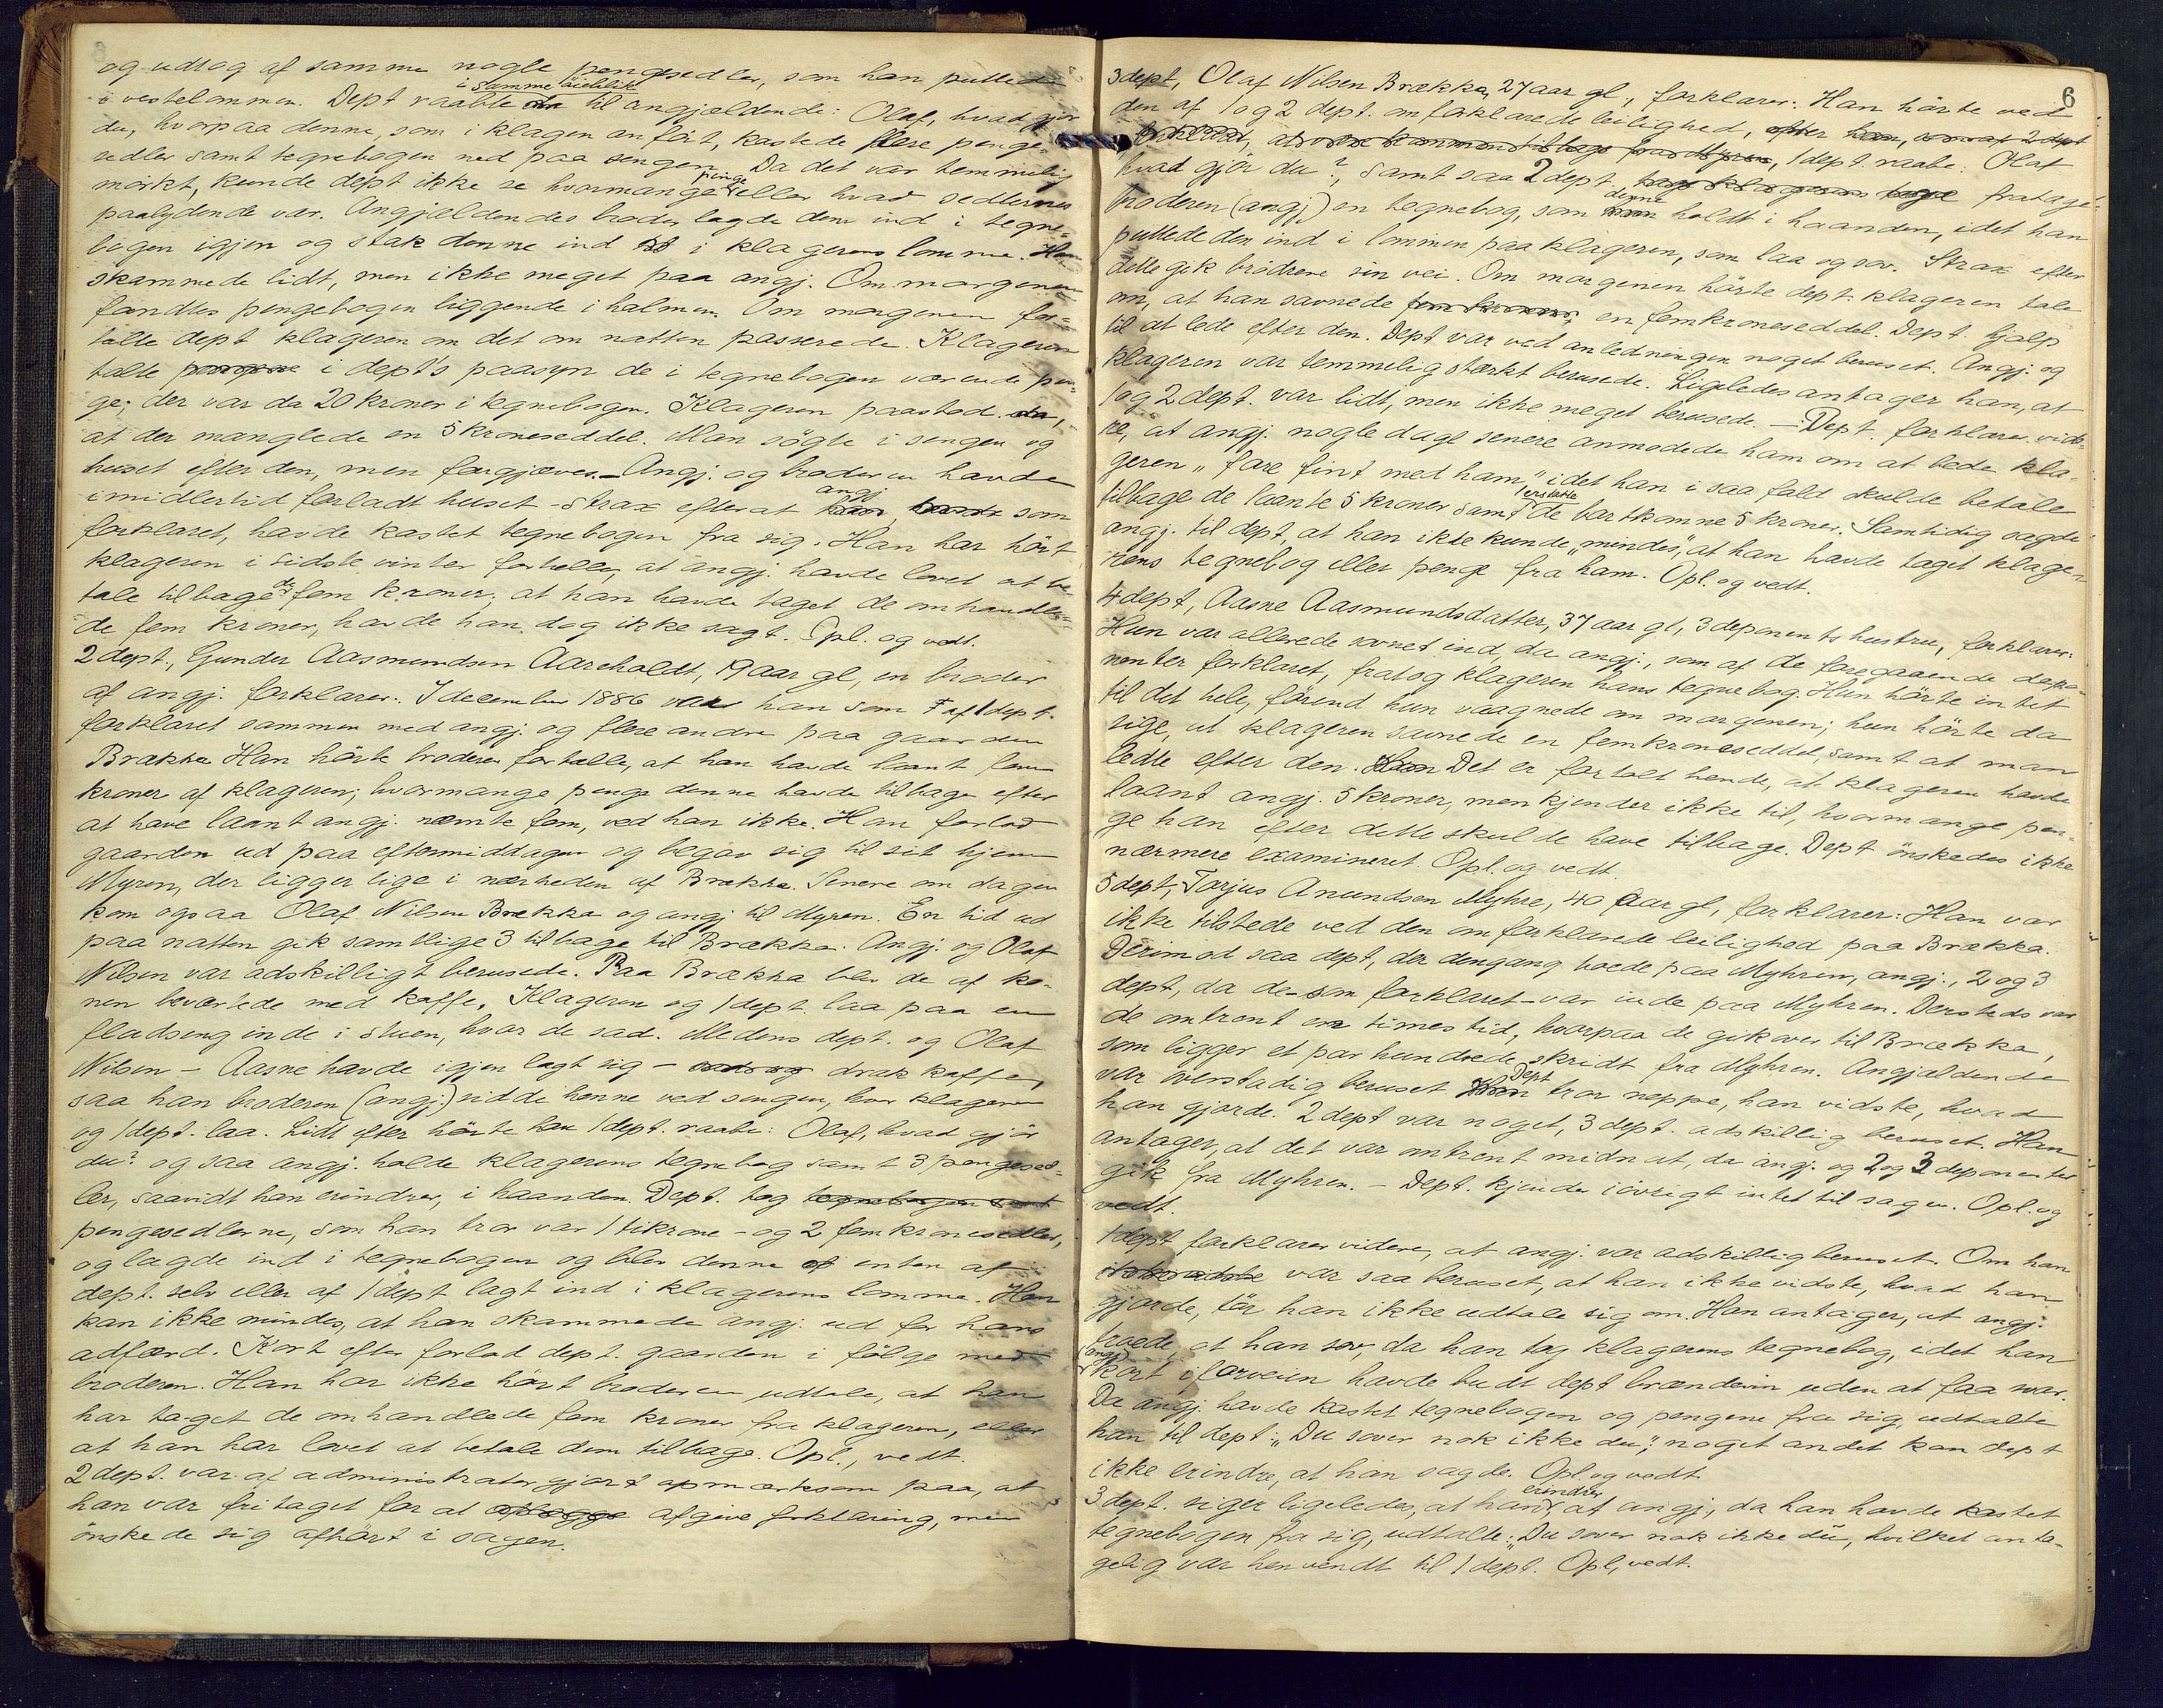 og udtog af samme nogle pengesedler, som han puttede
i samme øieblik
i vestelommen. Dept raabte da til angjældende: Olaf, hvad gjör
du, hvorpaa denne, som i klagen anfört, kastede flere penge-
sedler samt tegnebogen ned paa sengen. Da det var temmelig
mörkt, kunde dept ikke se hvormange penge eller hvad sedlernes
paalydende var. Angjældendes broder lagde dem ind i tegne-
bogen igjen og stak denne ind i klagerens lomme. Han
skammede lidt, men ikke meget paa angj. Om morgenen
fandtes pengebogen liggende i halmen. Om morgenen for-
talte dept klageren om det om natten passerede. Klageren
talte i dept's paasyn de i tegnebogen værende pen-
ge; der var da 20 kroner i tegnebogen. Klageren paastod da,
at der manglede en 5 kroneseddel. Man sögte i sengen og
huset efter den, men forgjæves. Angj. og broderen havde
imidlertid forladt huset - strax efter at han angj. havde som
forklaret, havde kastet tegnebogen fra sig. Han har hört
klageren i sidste vinter fortælle, at angj. havde lovet at be-
tale tilbage de fem kroner; at han havde taget de omhandle-
de fem kroner, havde han dog ikke sagt. Opl. og vedt.
2 dept., Gunder Aasmundsen Aareholdt, 19 aar gl, en broder
af angj. forklarer: I december 1886 var han som af 1 dept.
forklaret sammen med angj. og flere andre paa gaarden
Brækka. Han hörte broderen fortælle, at han havde laant fem
kroner af klageren; hvormange penge denne havde tilbage efter
at have laant angj. nævnte fem, ved han ikke. Han forlod
gaarden ud paa eftermiddagen og begav sig til sit hjem
Myren, der ligger lige i nærheden af Brækka. Senere om dagen
kom ogsaa Olaf Nilsen Brækka og angj til Myren. En tid ud
paa natten gik samtlige 3 tilbage til Brækka. Angj. og Olaf
Nilsen var adskilligt berusede. Paa Brækka blev de af ko-
nen beværtede med kaffe. Klageren og 1 dept. laa paa en
fladseng inde i stuen, hvor de sad. Medens dept. og Olaf
Nilsen - Aasne havde igjen lagt sig - sad og drak kaffen,
saa han broderen (angj.) sidde henne ved sengen, hvor klageren
og 1 dept. laa. Lidt efter hörte han 1 dept. raabe: Olaf, hvad gjör
du? og saa angj. holde klagerens tegnebog samt 3 pengesed-
ler, saavidt han erindrer, i haanden. Dept. tog tegnebogen samt
pengesedlerne, som han tror var 1 tikrone - og 2 femkronesedler,
og lagde ind i tegnebogen og blev denne enten af
dept. selv eller af 1 dept lagt ind i klagerens lomme. Han
kan ikke mindes, at han skammede angj. ud for hans
adfærd. Kort efter forlod dept. gaarden i fölge med
broderen. Han har ikke hört broderen udtale, at han
har taget de omhandlede fem kroner fra klageren, eller
at han har lovet at betale dem tilbage. Opl., vedt.
2 dept. var af administrator gjort opmærksom paa, at
han var fritaget for at aflægge afgive forklaring, men
önskede sig afhört i sagen.
6
3 dept, Olaf Nilsen Brækka, 27 aar gl., forklarer: Han hörte ved
den af 1 og 2 dept. omforklarede leilighed, efter han, som af 2 dept
forklaret, at være kommen tilbage fra Myren, 1 dept. raabe: Olaf
hvad gjör du?, samt saa 2 dept. tage klagerens fratage
broderen (angj.) en tegnebog, som denne holdt i haanden, idet han
puttede den ind i lommen paa klageren, som laa og sov. Strax efter
dette gik brödrene sin vei. Om morgenen hörte dept. klageren tale
om, at han savnede fem kroner, en femkroneseddel. Dept. hjalp
til at lede efter den. Dept var ved anledningen noget beruset. Angj. og
klageren var temmelig stærkt berusede. Ligeledes antager han, at
1 og 2 dept. var lidt, men ikke meget berusede. - Dept. forklarer vide-
re, at angj. nogle dage senere anmodede ham om at bede kla-
geren "fare fint med ham", idet han i saa fald skulde betale
tilbage de laante 5 kroner samt erstatte de bortkomne 5 kroner. Samtidig sagde
angj. til dept, at han ikke kunde "mindes", at han havde taget klage-
rens tegnebog eller penge fra ham. Opl. og vedt.
4 dept, Aasne Aasmundsdatter, 37 aar gl, 3 deponents hustru, forklarer:
Hun var allerede sovnet ind, da angj., som af de foregaaende depo-
nenter forklaret, fratog klageren hans tegnebog. Hun hörte intet
til det hele, förend hun vaagnede om morgenen; hun hörte da
sige, at klageren savnede en femkroneseddel, samt at man
ledte efter den. Han Det er fortalt hende, at klageren havde
laant angj. 5 kroner, men kjender ikke til, hvormange pen-
ge han efter dette skulde have tilbage. Dept önskedes ikke
nærmere examineret. Opl. og vedt.
5 dept, Torjus Anundsen Myhre, 40 aar gl, forklarer: Han var
ikke tilstede ved den omforklarede leilighed paa Brækka.
Derimod saa dept, der dengang boede paa Myhren, angj., 2 og 3
dept, da de - som forklaret - var inde paa Myhren. Dersteds var
de omtrent en times tid, hvorpaa de gik over til Brækka,
som ligger et par hundrede skridt fra Myhren. Angjældende
var overstadig beruset. Han Dept tror neppe, han vidste, hvad
han gjorde. 2 dept var noget, 3 dept. adskillig beruset. Han
antager, at det var omtrent midnat, da angj. og 2 og 3 deponenter
gik fra Myhren. - Dept. kjender iövrigt intet til sagen. Opl. og
vedt.
1 dept forklarer videre, at angj. var adskillig beruset. Om han
ikke vidste var saa beruset, at han ikke vidste, hvad han
gjorde, tör han ikke udtale sig om. Han antager, at angj.
troede, at han sov, da han tog klagerens tegnebog, idet han
(angj.)
kort iforveien havde budt dept brændevin uden at faa svar.
Da angj. havde kastet tegnebogen og pengene fra sig, udtalte
han til dept: "Du sover nok ikke du"; noget andet kan dept
ikke erindre, at han sagde. Opl. og vedt.
3 dept. siger ligeledes, at han erindrer, at angj., da han havde kastet
tegnebogen fra sig, udtalte: "Du sover nok ikke du, hvilket anta-
gelig var henvendt til 1 dept. Opl, vedt.